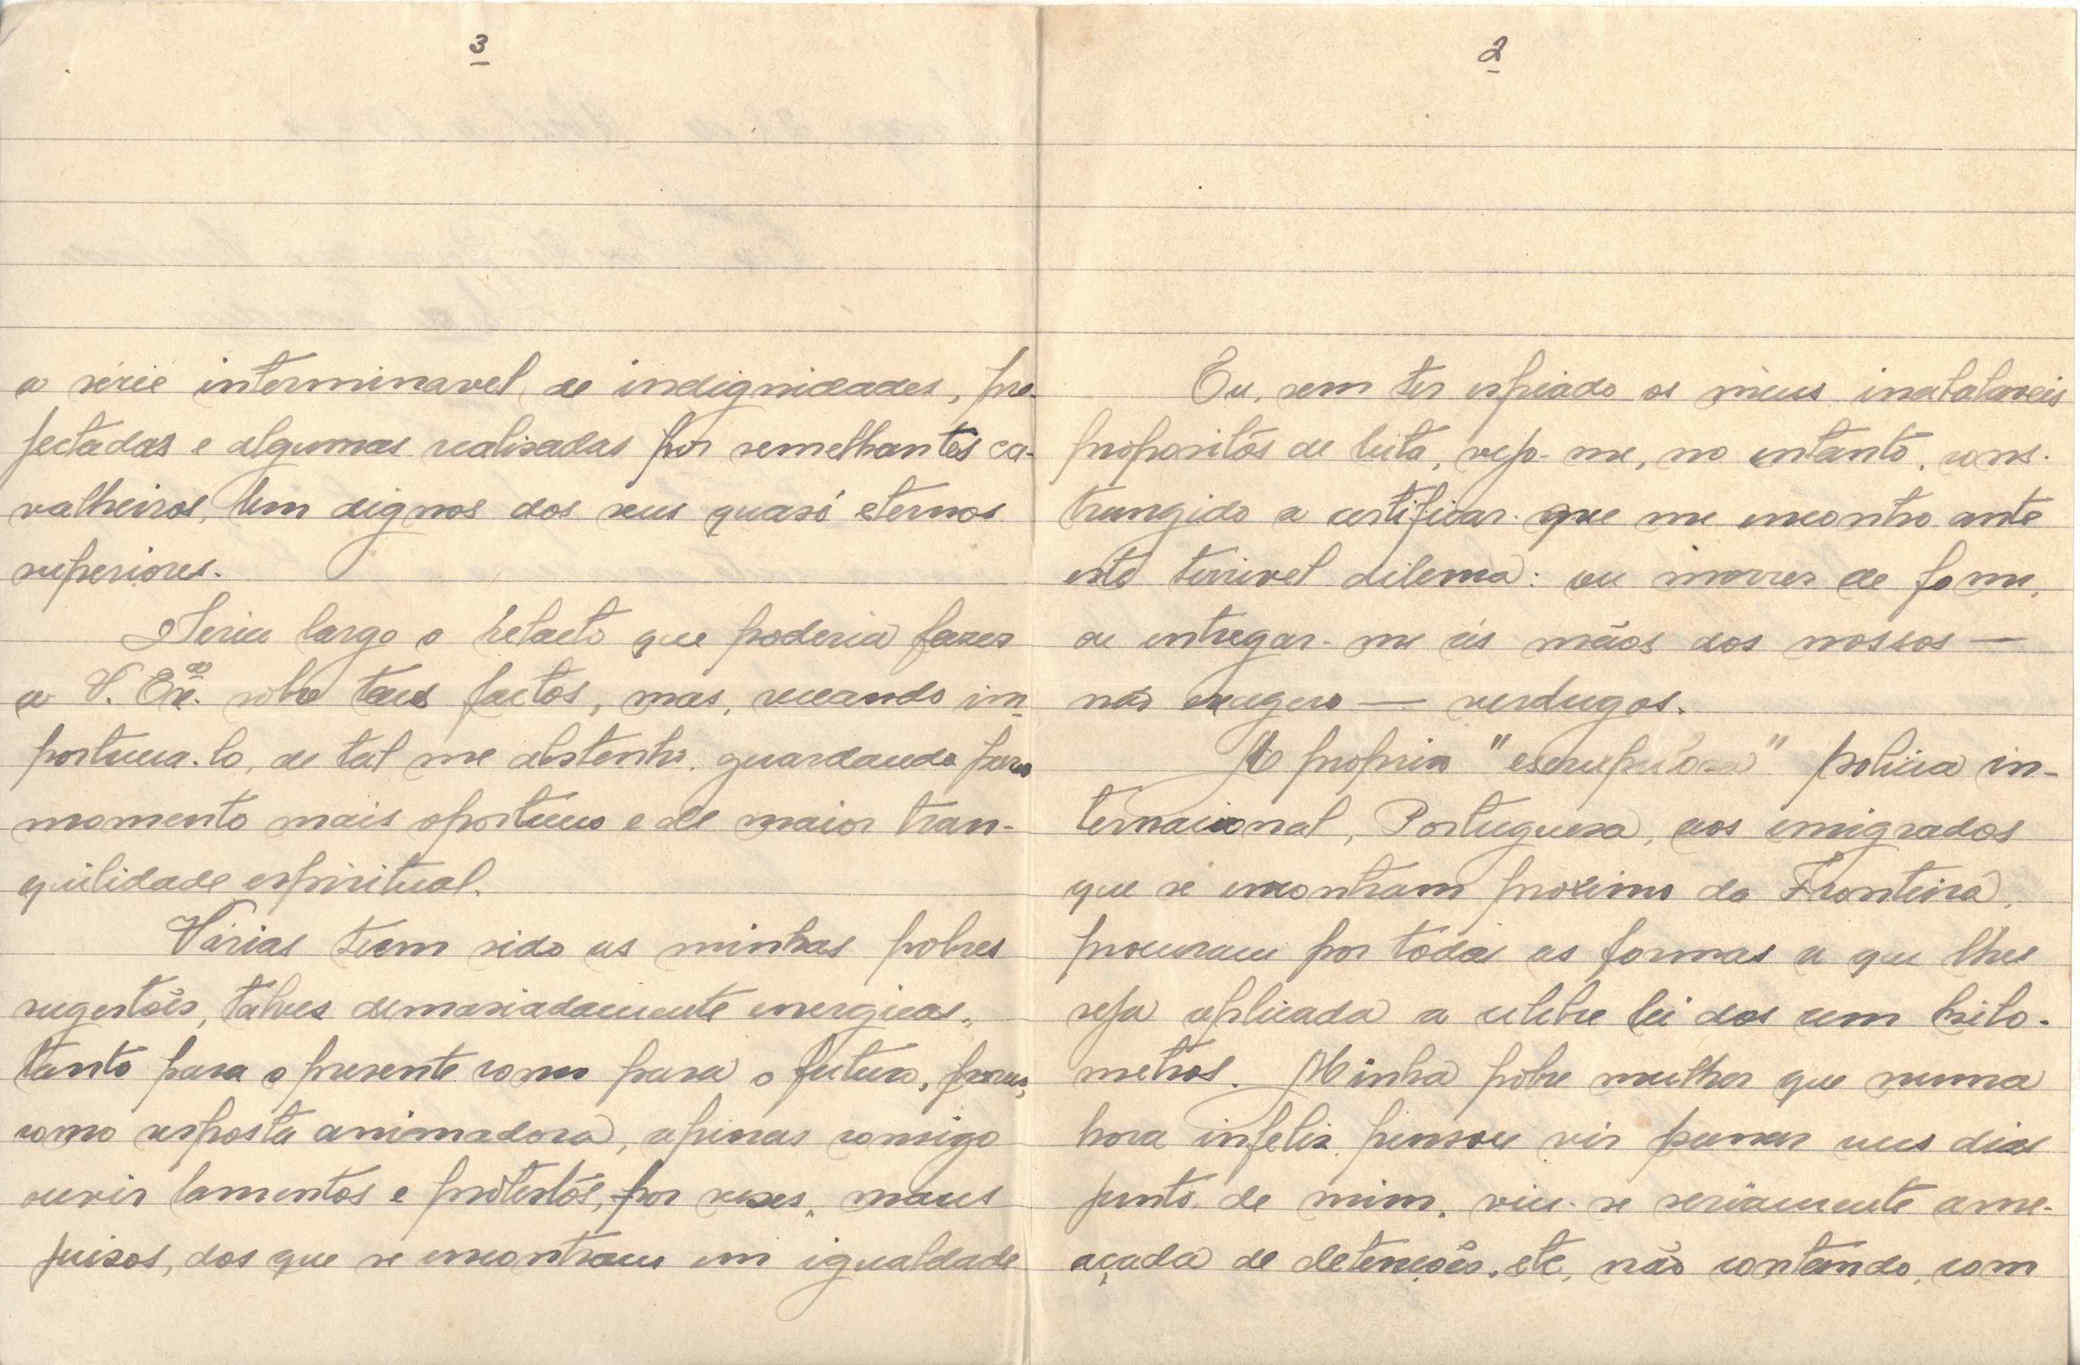 2
Eu, sem ter espiado os meus inabalaveis
propositos de luta, vejo-me, no entanto, cons-
trangido a certificar que me encontro ante
este terrivel dilema: ou morrer de fome,
ou entregar-me ás mãos dos nossos —
não exagero — verdugos.
A propria "escrupulosa" policia in-
ternacional, Portuguesa, aos emigrados
que se encontram proximo da Fronteira,
procuram por todas as formas a que lhes
seja aplicada a celebre lei dos cem kilo-
metros. Minha pobre mulher que numa
hora infeliz pensou vir passar uns dias
junto de mim, viu-se seriamente ame-
açada de detenções, etc, não contando, com
3
a série interminavel de indignidades, pro-
jectadas e algumas realisadas por semelhantes ca-
valheiros, bem dignos dos seus quasi eternos
superiores.
Seria largo o relacto que poderia fazer
a V. Exᶜⁱᵃ. sobre taes factos, mas, receando im-
portuna-lo, de tal me abstenho, guardando para
momento mais oportuno e de maior tran-
quilidade espiritual.
Várias teem sido as minhas pobres
sugestões, talves demasiadamente energicas,
tanto para o presente como para o futuro, porem,
como resposta animadora, apenas consigo
ouvir lamentos e protestos, por vezes, maus
juizos, dos que se encontram em igualdade